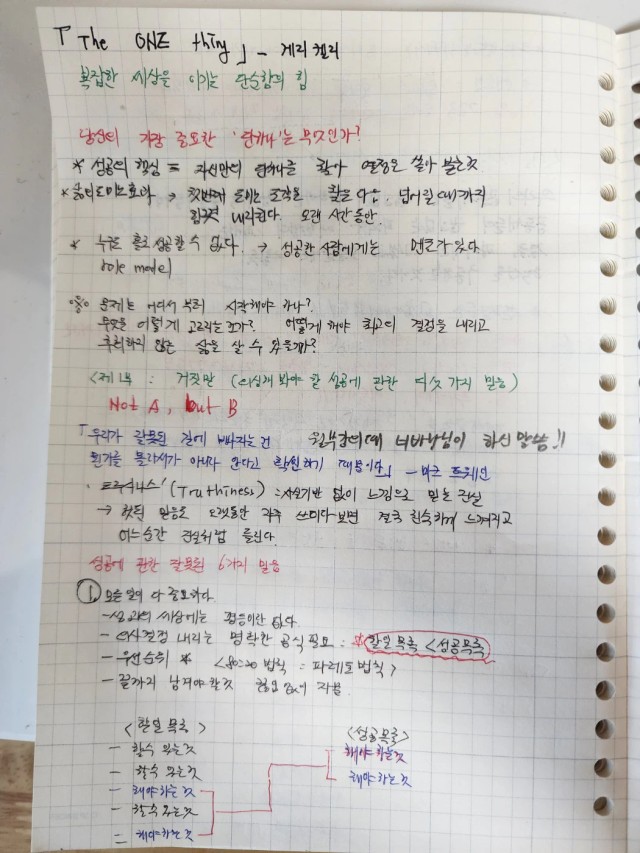 「The ONE thing」 - 게리 켈러
복잡한 세상을 이기는 단순함의 힘
당신의 가장 중요한 '단 하나'는 무엇인가?
* 성공의 핵심 = 자신만의 단 하나를 찾아 열정을 쏟아 붓는 것
* 삶의 도미노효과 → 첫번째 도미노 조각을 찾은 다음 넘어질 때까지
힘껏 내리친다. 오랜 시간 동안.
* 누구든 홀로 성공할 수 없다. → 성공한 사람에게는 멘토가 있다
role model
※ 문제는 어디서부터 시작해야 하나?
무엇을 어떻게 고르는건가? 어떻게 해야 최고의 결정을 내리고
후회하지 않는 삶을 살 수 있을까?
<제1부 : 거짓말 (의심해 봐야 할 성공에 관한 여섯 가지 믿음)
Not A, but B
「우리가 잘못된 길에 빠지는 건
뭔가를 몰라서가 아니라 안다고 확신하기 때문이다」 - 마크 트웨인
하신 말씀!!
· 트루시니스'(Truthiness) : 사실기반 없이 느낌으로 믿는 진실
→ 헛된 믿음도 오랫동안 자주 쓰이다 보면 결국 친숙하게 느껴지고
어느순간 진실처럼 들린다.
성공에 관한 잘못된 6가지 믿음
① 모든 일이 다 중요하다.
- 성과의 세상에는 평등이란 없다.
- 의사결정 내리는 명확한 공식 필요 : * 할일 목록 < 성공목록
- 우선순위 * <80:20 법칙 : 파레토 법칙>
- 끝까지 남겨야 할 것
<할일 목록> <성공목록>
- 할수 있는것 해야 하는것
- 할수 있는것 해야 하는것
- 해야 하는것
- 할수 있는것
= 해야 하는것